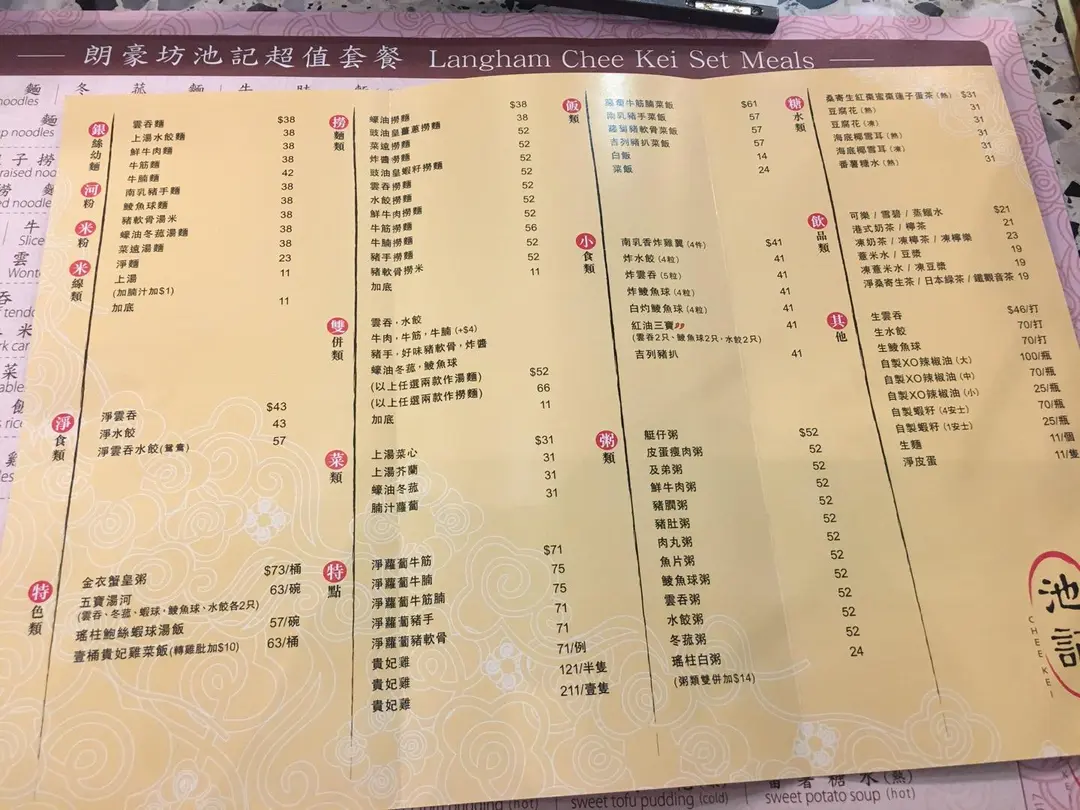 朗豪坊池記超值套餐 Langham Chee Kei Set Meals
銀絲幼麵
河粉
米粉
米線類
雲吞麵 $38
上湯水餃麵 38
鮮牛肉麵 38
牛筋麵 38
牛腩麵 42
南乳豬手麵 38
鯪魚球麵 38
豬軟骨湯米 38
蠔油冬菰湯麵 38
菜遠湯麵 38
淨麵 23
上湯 11
(加腩汁加$1)
加底 11
淨食類
淨雲吞 $43
淨水餃 43
淨雲吞水餃(鴛鴦) 57
特色類
金衣蟹皇粥 $73/桶
五寶湯河 63/碗
(雲吞、冬菰、蝦球、鯪魚球、水餃各2只)
瑤柱鮑絲蝦球湯飯 57/碗
壹桶貴妃雞菜飯(轉雞肶加$10) 63/桶
撈麵類
蠔油撈麵 $38
豉油皇薑蔥撈麵 38
菜遠撈麵 52
炸醬撈麵 52
豉油皇蝦籽撈麵 52
雲吞撈麵 52
水餃撈麵 52
鮮牛肉撈麵 52
牛筋撈麵 52
牛腩撈麵 56
豬手撈麵 52
豬軟骨撈米 52
加底 11
雙併類
雲吞，水餃
牛肉，牛筋，牛腩(+$4)
豬手，好味豬軟骨，炸醬
蠔油冬菰，鯪魚球
(以上任選兩款作湯麵) $52
(以上任選兩款作撈麵) 66
加底 11
菜類
上湯菜心 $31
上湯芥蘭 31
蠔油冬菰 31
腩汁蘿蔔 31
特點
淨蘿蔔牛筋 $71
淨蘿蔔牛腩 75
淨蘿蔔牛筋腩 75
淨蘿蔔豬手 71
淨蘿蔔豬軟骨 71
貴妃雞 71/例
貴妃雞 121/半隻
貴妃雞 211/壹隻
飯類
蘿蔔牛筋腩菜飯 $61
南乳豬手菜飯 57
蘿蔔豬軟骨菜飯 57
吉列豬扒菜飯 57
白飯 14
菜飯 24
小食類
南乳香炸雞翼(4件) $41
炸水餃(4粒) 41
炸雲吞(5粒) 41
炸鯪魚球(4粒) 41
白灼鯪魚球(4粒) 41
紅油三寶 41
(雲吞2只、鯪魚球2只、水餃2只)
吉列豬扒 41
粥類
艇仔粥 $52
皮蛋瘦肉粥 52
及弟粥 52
鮮牛肉粥 52
豬膶粥 52
豬肚粥 52
肉丸粥 52
魚片粥 52
鯪魚球粥 52
雲吞粥 52
水餃粥 52
冬菰粥 52
瑤柱白粥 24
(粥類雙併加$14)
糖水類
桑寄生紅棗蜜棗蓮子蛋茶(熱) $31
豆腐花(熱) 31
豆腐花(凍) 31
海底椰雪耳(熱) 31
海底椰雪耳(凍) 31
番薯糖水(熱) 31
飲品類
可樂 / 雪碧 / 蒸餾水 $21
港式奶茶 / 檸茶 21
凍奶茶 / 凍檸茶 / 凍檸樂 23
薏米水 / 豆漿 19
凍薏米水 / 凍豆漿 19
淨桑寄生茶 / 日本綠茶 / 鐵觀音茶 19
其他
生雲吞 $46/打
生水餃 70/打
生鯪魚球 70/打
自製XO辣椒油(大) 100/瓶
自製XO辣椒油(中) 70/瓶
自製XO辣椒油(小) 25/瓶
自製蝦籽(4安士) 70/瓶
自製蝦籽(1安士) 25/瓶
生麵 11/個
淨皮蛋 11/隻
池記
CHEE KEI
sweet tofu pudding (cold)
番薯糖水(熱)
sweet potato soup (hot)